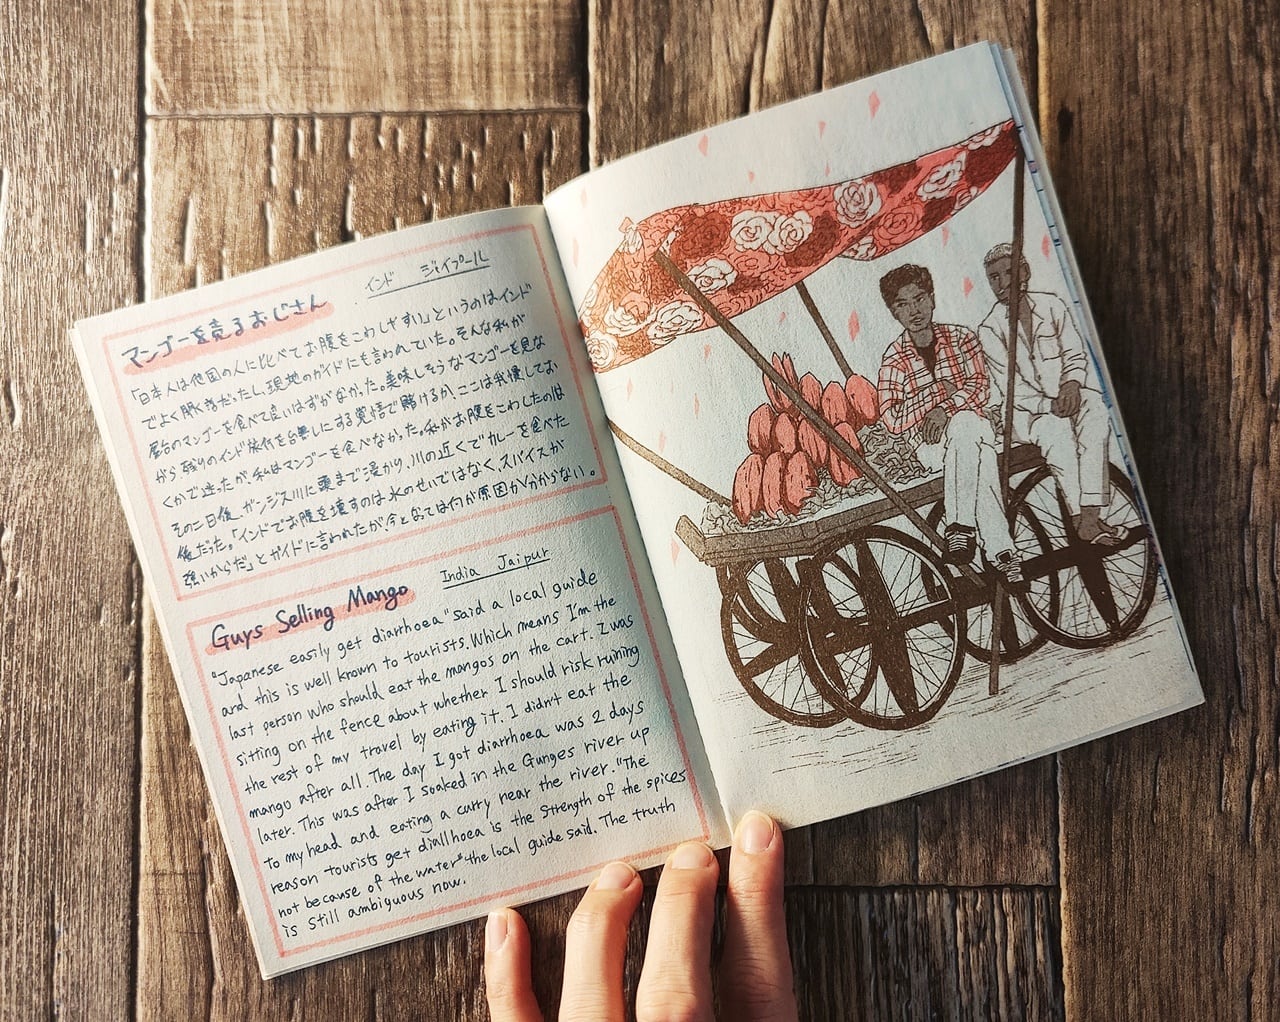 マンゴーを売るおじさん
インド ジャイプール
「日本人は他国の人に比べてお腹をこわしやすい」というのはインド
でよく聞く話だったし、現地のガイドにも言われていた。そんな私が
屋台のマンゴーを食べて良いはずがなかった。美味しそうなマンゴーを見な
がら残りのインド旅行を台無しにする覚悟で賭けるか、ここは我慢してお
くかで迷ったが、私はマンゴーを食べなかった。私がお腹をこわしたのは
その二日後、ガンジス川に頭まで浸かり、川の近くでカレーを食べた
後だった。「インドでお腹を壊すのは水のせいではなく、スパイスが
強いからだ」とガイドに言われたが、今となっては何が原因か分からない。
Guys Selling Mango
India Jaipur
"Japanese easily get diarrhoea" said a local guide
and this is well known to tourists. Which means I'm the
last person who should eat the mangos on the cart. I was
sitting on the fence about whether I should risk ruining
the rest of my travel by eating it. I didn't eat the
mango after all. The day I got diarrhoea was 2 days
later. This was after I soaked in the Gunges river up
to my head and eating a curry near the river. "The
reason tourists get diallhoea is the strength of the spices
not because of the water" the local guide said. The truth
is still ambiguous now.